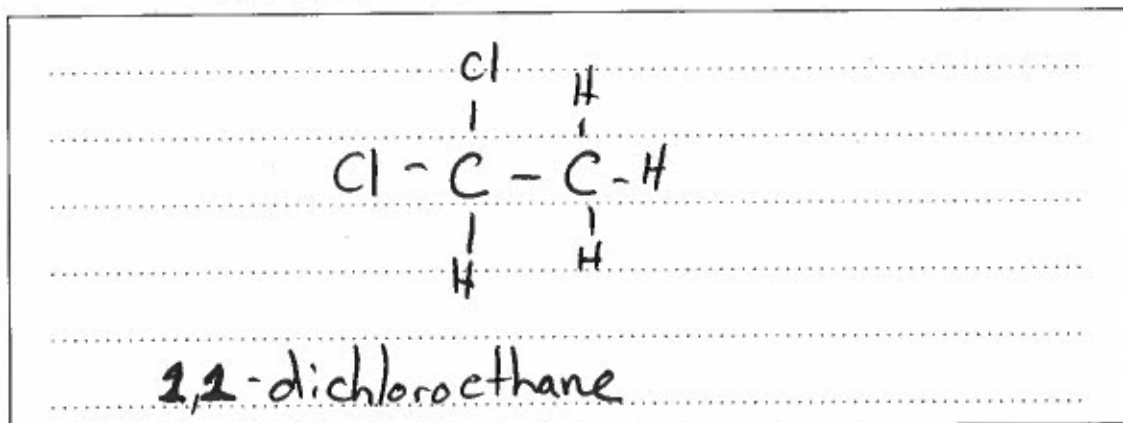 Cl H
Cl - C - C - H
H H
1,1-dichloroethane